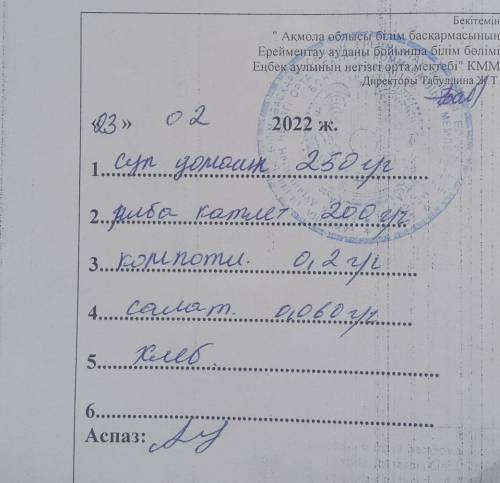 Бекітемін
" Ақмола облысы білім басқармасының
Ерейментау ауданы бойынша білім бөлімі
Еңбек ауылының негізгі орта мектебі" КММ
Директоры Габулдина Ж Т
«23» 02 2022 ж.
1. суп домашн 250 гр
2. рыба катлет 200 гр
3. компот. 0,2 гр
4. салат. 0,060 гр
5. хлеб.
6.
Аспаз: